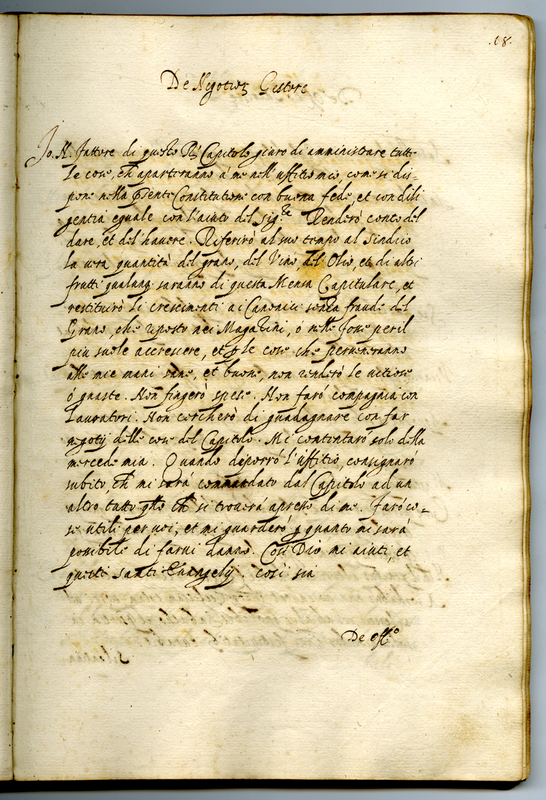 .18.
De Negotioꝝ Gestore
Io. N. fattore di questo Rº Capitolo giuro di amministrare tutte
le cose, ch' apartenranno à me nell' uffitio mio, come si dis-
pone nella p̃sente Constitutione con buona fede, et con dili
gentia eguale con l'aiuto del sigre. Renderò conto del
dare, et del havere. Riferirò al suo tempo al Sindico
la vera quantità del grano, del Vino, del Olio, et di altri
frutti qualunq saranno di questa Mensa Capitulare, et
restituirò li crescimenti ai Canonici senza fraude del
Grano, che riposto nei Magazini, ó nelle fosse per il
più suole accrescere, et ꝑ le cose che perveneranno
alle mie mani sane, et buone, non renderò le vitiose
ó guaste. Non fingerò spese. Non farò compagnia con
Lavoratori. Non cercherò di guadagnare con far
negotij delle cose del Capitolo. Mi contentarò solo della
mercede mia. Quando diporrò l'uffitio, consignarò
subito, ch' mi sarà commandato dal Capitolo ad un
altro tutto qllo ch' si trouerà apresso di me. Farò co-
se utili per voi, et mi guarderò ꝑ quanto mi sarà
possibile di farui danno. Così Dio mi aiuti, et
questi santi Euangelij. così sia
De offº